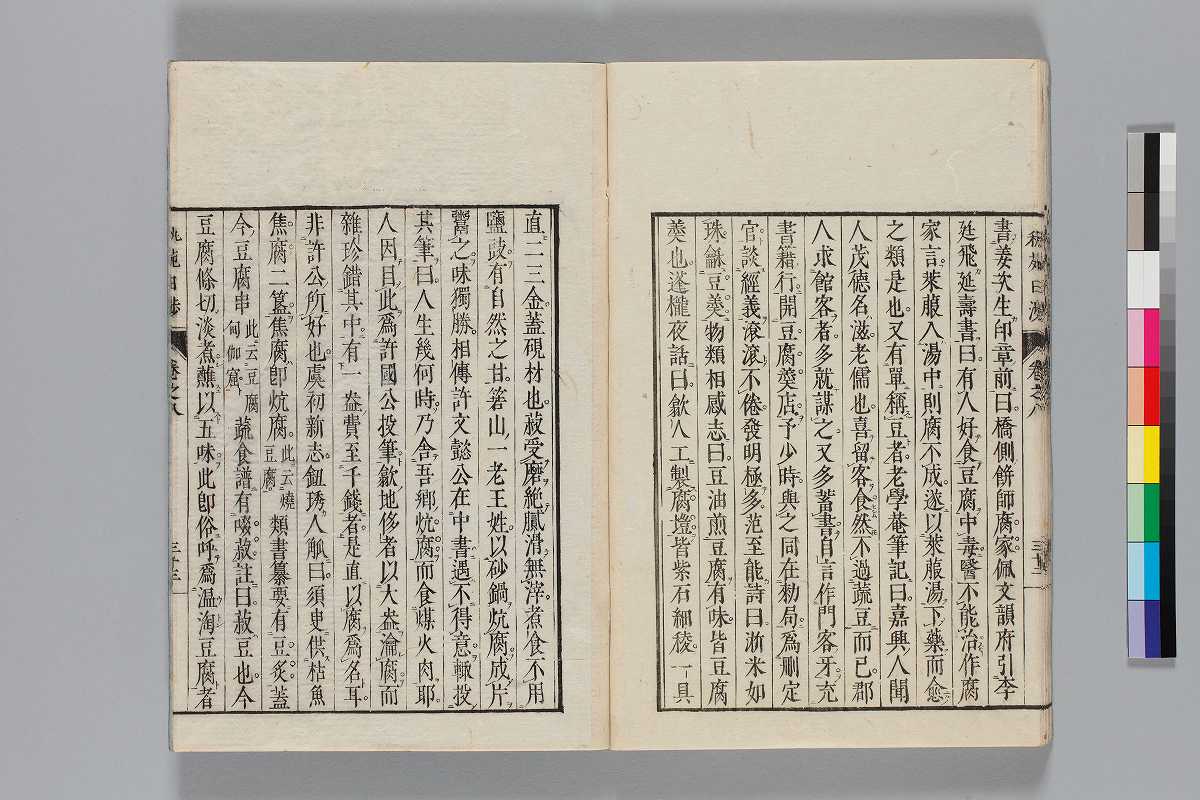 書姜次生印章前曰橋側餅師腐家佩文韻府引李
廷飛延壽書曰有人好食豆腐中毒醫不能治作腐
家言萊菔入湯中則腐不成遂以萊菔湯下藥而愈
之類是也又有單稱豆者老學菴筆記曰嘉興人聞
人茂德名滋老儒也喜留客食然不過蔬豆而已郡
人求館客者多就謀之又多蓄書自言作門客牙充
書籍行開豆腐羹店予少時與之同在勅局爲刪定
官談經義滾滾不倦發明極多范至能詩曰淅米如
珠龢豆羹物類相感志曰豆油煎豆腐有味皆豆腐
羹也蓬櫳夜話曰歙人工製腐磑皆紫石細稜一具
卷之八
直二三金蓋硯材也菽受磨絶膩滑無滓煮食不用
鹽豉有自然之甘箬山一老王姓以砂鍋炕腐成片
鬻之味獨勝相傳許文懿公在中書遇不得意輙投
其筆曰人生幾何時乃舎吾鄉炕腐而食煤火肉耶
人因目此爲許國公投筆歙地侈者以大盎瀹腐而
雜珍錯其中有一盎費至千錢者是直以腐爲名耳
非許公所好也虞初新志鈕琇人觚曰須臾供枯魚
焦腐二簋焦腐卽炕腐此云燒豆腐類書纂要有豆炙蓋
今豆腐串此云豆腐甸伽窟蔬食譜有啜菽註曰菽豆也今
豆腐條切淡煮蘸以五味此卽俗呼爲温淘豆腐者
卷之八
三十三